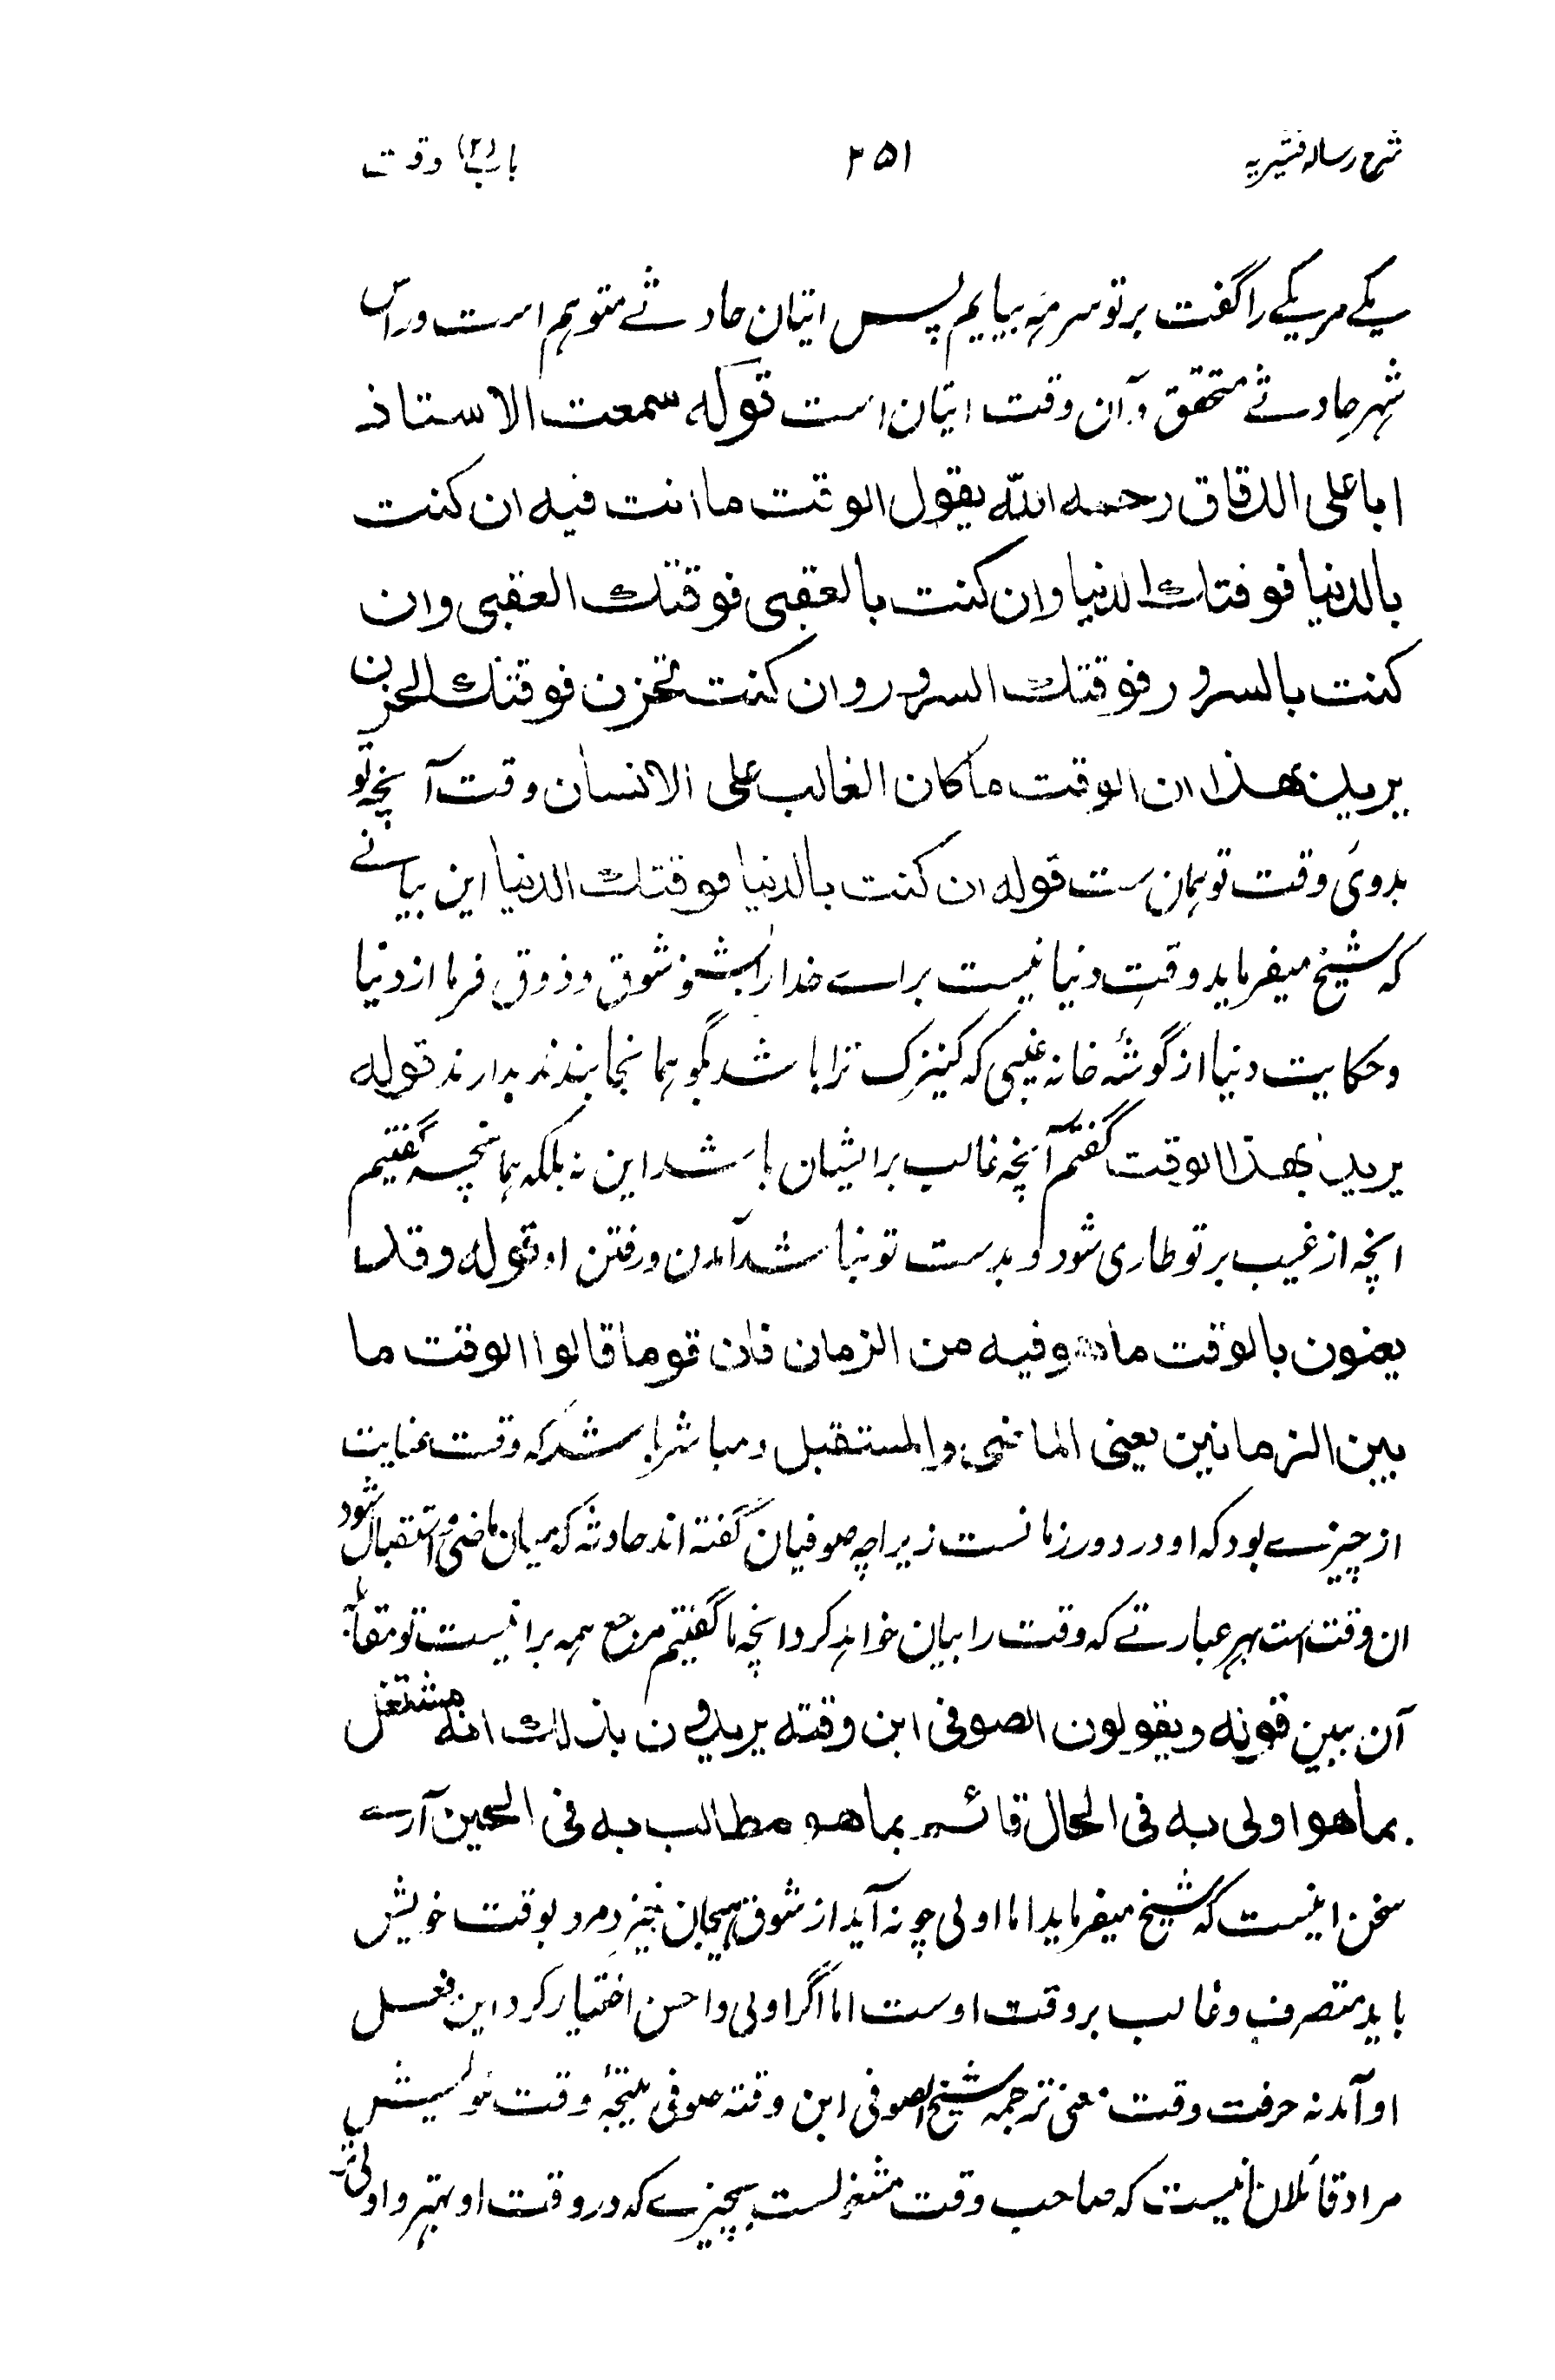 شرح رسالہ قشیریہ ۲۵۱ باب (۲) وقت
یکے مریکے را گفت بر تو سر مہ بیایم پس اتیان حادثے متوہم است وراس
شہر حادثے متحقق و آن وقت اتیان است قوله سمعت الاستاذ
ابا علی الدقاق رحمه الله یقول الوقت ما انت فیه ان کنت
بالدنیا فوقتك الدنیا وان کنت بالعقبی فوقتك العقبی وان
کنت بالسرور فوقتك السرور وان کنت بحزن فوقتك الحزن
یرید بهذا ان الوقت ما کان الغالب علی الانسان وقت آنچہ تو
بدوی وقت تو ہمان ست قوله ان کنت بالدنیا فوقتك الدنیا این بیانے
کہ شیخ میفرماید وقت دنیا نیست براے خدا را بشنو شوق و ذوق فرما از دنیا
و حکایت دنیا از گوشۂ خانہ غیبی کہ کنیزک ترا باشد بگو ہمانجا بندند بدارند قوله
یرید بهذا الوقت گفتم آنچہ غالب برایشان باشد این نہ بلکہ ہمانچہ گفتیم
انچہ از غیب بر تو طاری شود و بدست تو نباشد آمدن و رفتن او قوله وقد
یعنون بالوقت ما هو فیه من الزمان فان قوما قالوا الوقت ما
بین الزمانین یعنی الماضی والمستقبل و مباشر باشد کہ وقت عنایت
از چیزے بود کہ او در دور زمانست زیراچہ صوفیان گفتہ اند حادثہ کہ میان ماضی و استقبال شود
ان وقت است بہر عبارتے کہ وقت را بیان خواہد کرد انچہ ما گفتیم مرجع ہمہ برانیست تو مقابلہ
آن ببین قوله ویقولون الصوفی ابن وقته یریدون بذلك انه مشتغل
بما هو اولی به فی الحال قائم بما هو مطالب به فی الحین آرے
سخن اینست کہ شیخ میفرماید اما اولی چونہ آید از شوق ہیجان خیزد مرد بوقت خویش
باید متصرف و غالب بر وقت اوست اما اگر اولی و احسن اختیار کرد این فعل
او آمد نہ حرفت وقت معنی ترجمہ شیخ الصوفی ابن وقتہ صوفی نتیجۂ وقت خویش
مراد قائلان اینست کہ صاحب وقت مشغولست بچیزے کہ در وقت او بہتر و اولی تر